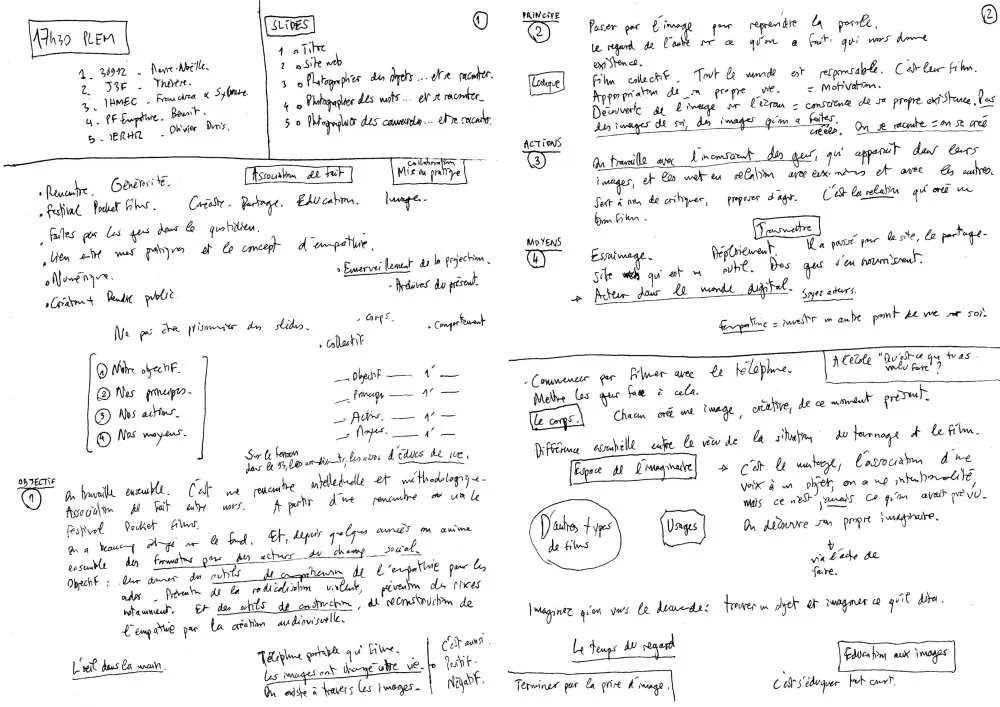 17h30 PLEM
1. 30912 - Marie-Noëlle.
2. J3F - Thérèse.
3. IHMEC - Francesca x Sylvane
4. PF Empathie. Benoit.
5. IERHR - Olivier Douis.
SLIDES
①
1 o Titre
2 o Site web
3 o Photographier des objets... et se raconter.
4 o Photographier des mots... et se raconter.
5 o Photographier des camarades... et se raconter.
• Rencontre. Générosité.
Association de fait
Collaboration
Mix au pratique
• Festival Pocket Films. Créaste. Partage. Education. Image.
• faites par les gens dans le quotidien.
• lien entre mes pratiques et le concept d'empathie.
• Numérique.
• Création + Rendre public.
• Emerveillement de la projection.
- Archives du présent.
Ne pas être prisonnier des slides.
• corps.
• collectif
• Comportement
① Notre objectif.
② Nos principes.
③ Nos actions.
④ Nos moyens.
— Objectif — 1' —
— Principes — 1' —
— Actions. — 1' —
— Moyes. — 1' —
Sur le terrain
dans le 93, les
OBJECTIF
①
On travaille ensemble. C'est une rencontre intellectuelle et méthodologique.
Association de fait entre nous. A partir d'une rencontre via le
festival Pocket films.
On a beaucoup échangé sur le fond. Et, depuis quelques années on anime
ensemble des formations pour des acteurs du champ social.
Objectif : leur donner des outils de compréhension de l'empathie pour les
ados. Prévention de la radicalisation violente, prévention des rixes
notamment. Et des outils de construction, de reconstruction de
l'empathie par la création audiovisuelle.
L'oeil dans la main.
Téléphone portable qui filme.
Les images ont changé notre vie.
On existe à travers les images.
C'est aussi.
o Positif.
Négatif.
PRINCIPE
②
②
Passer par l'image pour reprendre la parole.
Le regard de l'autre sur ce qu'on a fait. qui nous donne
existence.
Film collectif. Tout le monde est responsable. C'est leur film.
Appropriation de sa propre vie. = Motivation.
Découverte de l'image sur l'écran = conscience de sa propre existence. Pas
des images de soi, des images qu'on a faites.
créées. On se raconte = on se créé
ACTIONS
③
On travaille avec l'inconscient des gens, qui apparait dans leurs
images, et les met en relation avec eux-mêmes et avec les autres.
Sert à rien de critiquer, proposer d'agir. C'est la relation qui crée un
bon film.
Transmettre
MOYENS
④
Essaimage. Déploiement. Il a passé par le site, le partage.
Site web qui est un outil. Des gens s'en nourrissent.
→ Acteur dans le monde digital. Soyez acteurs.
Empathie = investir un autre point de vue sur soi.
A l'école "Qu'est ce que tu as
voulu faire"?
• Commencer par filmer avec le téléphone.
Mettre les gens face à cela.
Le corps.
Chacun crée une image, créative, de ce moment présent.
Différence essentielle entre le vécu de la situation du tournage et le film.
Espace de l'imaginaire
→ C'est le montage, l'association d'une
voix à un objet, on a une intentionalité,
mais ce n'est jamais ce qu'on avait prévu.
On découvre son propre imaginaire.
via l'acte de
faire.
D'autres types
de films
Usages
Imaginez qu'on vous le demande: trouver un objet et imaginer ce qu'il dira.
Le temps du regard
Education aux images
Terminer par la prise d'image.
C'est s'éduquer tout court.